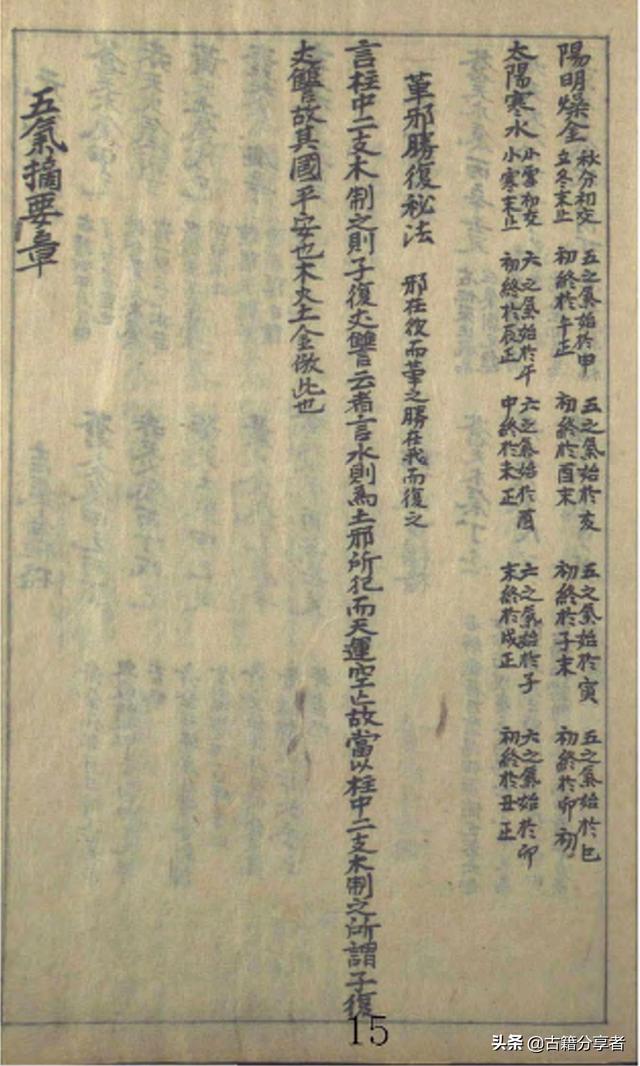 陽明燥金 秋分初交 立冬末止 五之氣始於申初終於午正 五之氣始於亥初終於酉末 五之氣始於寅初終於子末 五之氣始於巳初終於卯初
太陽寒水 小雪初交 小寒末止 六之氣始於午初終於辰正 六之氣始於酉中終於未正 六之氣始於子末終於戌正 六之氣始於卯初終於丑正
革邪勝復秘法 邪在彼而革之勝在我而復之
言柱中二支木制之則子復丈讐云者言水則為土邪所犯而天運空亡故當以柱中二支木制之所謂子復
丈讐故其國平安也木火土金倣此也
五氣摘要章
15
头条 @古籍分享者